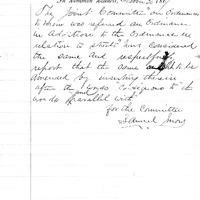 The Joint Committee on Ordinances
to whom was referred an Ordinance
in Addition to the Ordinance in
relation to streets have considered
the same and respectfully
report that the same ought to be
amended by inserting therein
after the words "contiguous to" the
words "and parallel with"
for the Committee
Samuel